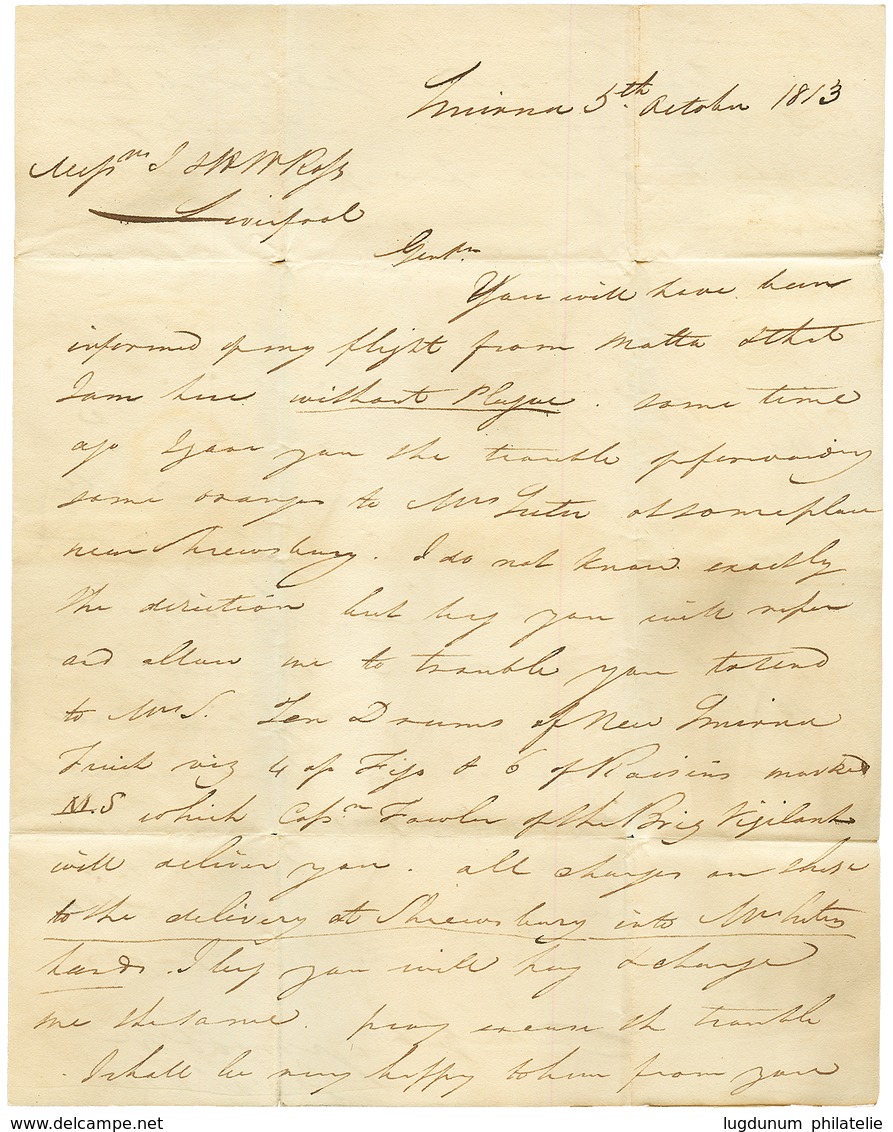 Smirna 5th October 1813
Messrs J & H W Ross
Liverpool
Gentn
You will have been
informed of my flight from Malta & that
I am here without Plague. some time
ago I gave you the trouble of forwarding
some oranges to Mrs at some place
near Shrewsbury. I do not know exactly
the direction but beg you will refer
and allow me to trouble you to send
to Mrs S. Ten Drums of New Smirna
Fruit viz 4 of Figs & 6 of Raisins marked
M.S which Captn Fowler of the Brig Vigilant
will deliver you. all charges on these
to the delivery at Shrewsbury into Mrs
hands. I beg you will pay & charge
me the same. pray excuse the trouble
I shall be very happy to hear from you
www.delcampe.net
lugdunum philatelie